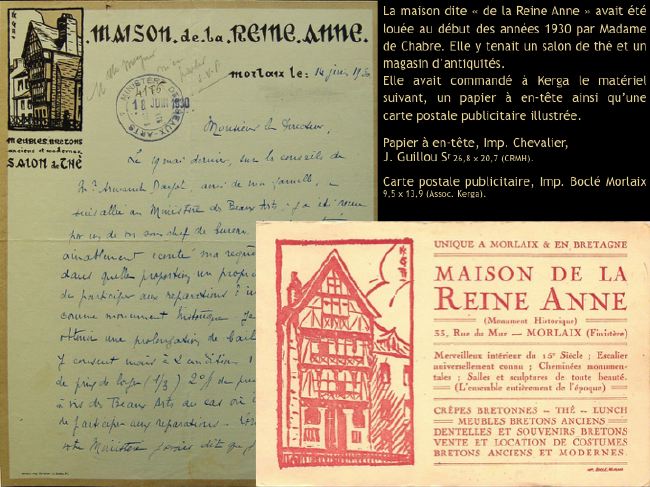 .MAISON. de. la. REINE. ANNE.
morlaix le: 14 juin 1930
MEUBLES. BRETONS
anciens et modernes
SALON de THÉ
MINISTÈRE DES BEAUX-ARTS
18 JUIN 1930
Monsieur le Directeur,
Le 19 mai dernier, sur le conseil de
Mr Armand Dayot, ami de ma famille, je
suis allée au Ministère des Beaux Arts; j'ai été reçue
par un de vos sous chefs de bureau
aimablement écouté ma requête
dans quelle proposition un propriétaire
de participer aux réparations
comme monument historique
obtenir une prolongation de bail
y consent mais à 2 conditions
de prix de loyer (1/3) 2°/
à vis des Beaux Arts au cas où
de participer aux réparations.
votre Ministère
La maison dite « de la Reine Anne » avait été
louée au début des années 1930 par Madame
de Chabre. Elle y tenait un salon de thé et un
magasin d'antiquités.
Elle avait commandé à Kerga le matériel
suivant, un papier à en-tête ainsi qu'une
carte postale publicitaire illustrée.
Papier à en-tête, Imp. Chevalier,
J. Guillou Sr 26,8 x 20,7 (CRMH).
Carte postale publicitaire, Imp. Boclé Morlaix
9,5 x 13,9 (Assoc. Kerga).
UNIQUE A MORLAIX & EN BRETAGNE
MAISON DE LA
REINE ANNE
(Monument Historique)
33, Rue du Mur — MORLAIX (Finistère)
Merveilleux intérieur du 15e Siècle ; Escalier
universellement connu ; Cheminées monumen-
tales ; Salles et sculptures de toute beauté.
(L'ensemble entièrement de l'époque)
CRÊPES BRETONNES -- THÉ -- LUNCH
MEUBLES BRETONS ANCIENS
DENTELLES ET SOUVENIRS BRETONS
VENTE ET LOCATION DE COSTUMES
BRETONS ANCIENS ET MODERNES.
IMP. BOCLÉ, MORLAIX